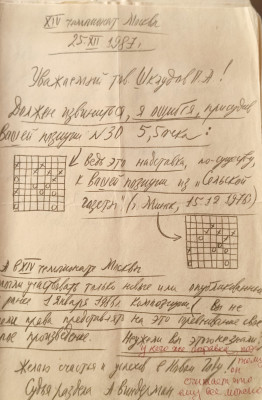 XIV чемпионат Москвы
25-XII 1987 г.
Уважаемый тов Шклудов П А!
Должен извиниться, я ошибся, присудив
Вашей позиции №30 5,5 очка:
ведь это надставка, по-существу,
к вашей позиции из "Сельской
газеты" (г. Минск, 15-12 1978)
А в XIV чемпионате Москвы
участвовать только новые или опубликованные
ранее 1 января 1981 композиции! Вы не
права представлять на это соревнование свое
произведение. Неужели вы этого не знали,
Желаю счастья и успехов в Новом Году!
он
считает что
ему все можно
Судья раздела А Виндерман